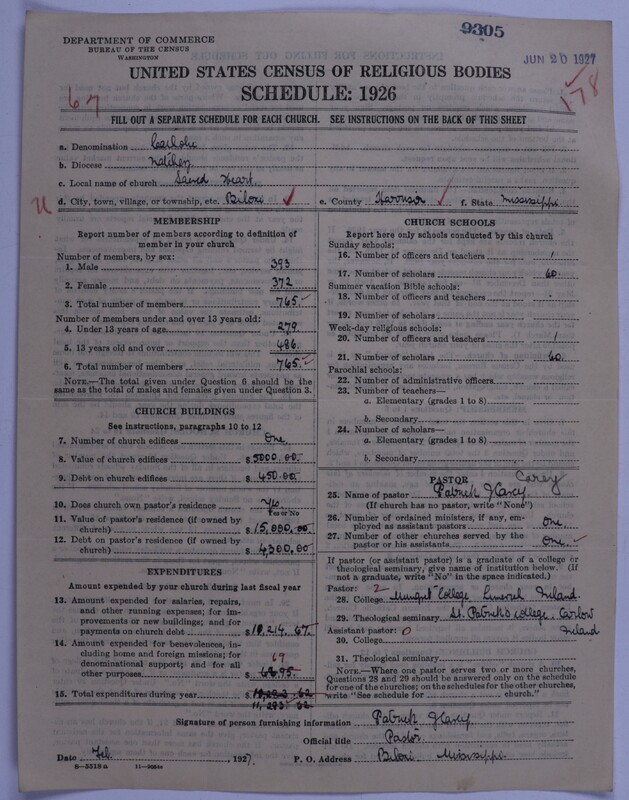 9305
DEPARTMENT OF COMMERCE
BUREAU OF THE CENSUS
WASHINGTON
JUN 20 1927
UNITED STATES CENSUS OF RELIGIOUS BODIES
SCHEDULE: 1926
67
178
FILL OUT A SEPARATE SCHEDULE FOR EACH CHURCH. SEE INSTRUCTIONS ON THE BACK OF THIS SHEET
a. Denomination Catholic
b. Diocese Natchez
c. Local name of church Sacred Heart
d. City, town, village, or township, etc. Biloxi ✓ e. County Harrison ✓ f. State Mississippi
MEMBERSHIP
Report number of members according to definition of
member in your church
Number of members, by sex:
1. Male 393
2. Female 372
3. Total number of members 765
Number of members under and over 13 years old:
4. Under 13 years of age 279
5. 13 years old and over 486
6. Total number of members 765
NOTE.—The total given under Question 6 should be the
same as the total of males and females given under Question 3.
CHURCH BUILDINGS
See instructions, paragraphs 10 to 12
7. Number of church edifices One
8. Value of church edifices $5000.00
9. Debt on church edifices $450.00
10. Does church own pastor's residence Yes
Yes or No
11. Value of pastor's residence (if owned by
church) $15,000.00
12. Debt on pastor's residence (if owned by
church) $4300.00
EXPENDITURES
Amount expended by your church during last fiscal year
13. Amount expended for salaries, repairs,
and other running expenses; for im-
provements or new buildings; and for
payments on church debt $
14. Amount expended for benevolences, in-
cluding home and foreign missions; for
denominational support; and for all
other purposes $
15. Total expenditures during year $
CHURCH SCHOOLS
Report here only schools conducted by this church
Sunday schools:
16. Number of officers and teachers 1
17. Number of scholars 60
Summer vacation Bible schools:
18. Number of officers and teachers
19. Number of scholars
Week-day religious schools:
20. Number of officers and teachers 1
21. Number of scholars 60
Parochial schools:
22. Number of administrative officers
23. Number of teachers—
a. Elementary (grades 1 to 8)
b. Secondary
24. Number of scholars—
a. Elementary (grades 1 to 8)
b. Secondary
PASTOR Carey
25. Name of pastor Patrick J Carey
(If church has no pastor, write "None")
26. Number of ordained ministers, if any, em-
ployed as assistant pastors One
27. Number of other churches served by the
pastor or his assistants One ✓
If pastor (or assistant pastor) is a graduate of a college or
theological seminary, give name of institution below. (If
not a graduate, write "No" in the space indicated.)
Pastor: 2
28. College Mungret College, Limerick Ireland
29. Theological seminary St. Patrick's College, Carlow
Assistant pastor: 0 Ireland
30. College
31. Theological seminary
NOTE.—Where one pastor serves two or more churches,
Questions 28 and 29 should be answered only on the schedule
for one of the churches; on the schedules for the other churches,
write "See schedule for church."
Signature of person furnishing information Patrick J Carey
Official title Pastor
Date Feb. , 1927. P. O. Address Biloxi Mississippi